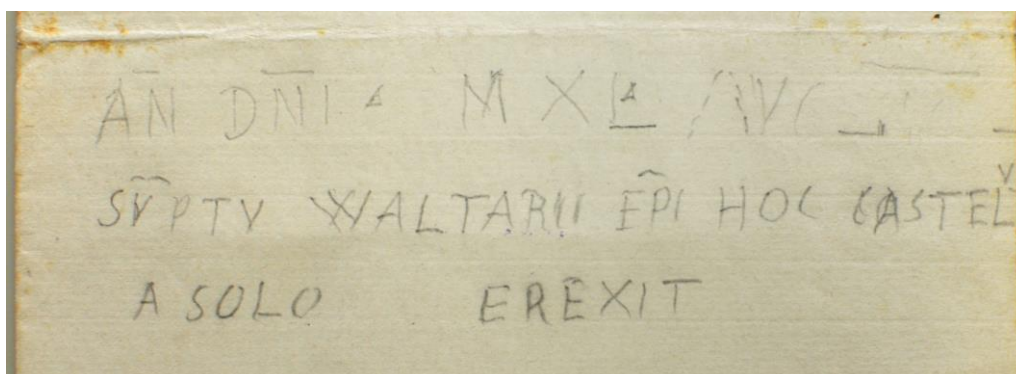 AN DNI M X L
SVPTV WALTARII EPI HOC CASTEL
A SOLO EREXIT